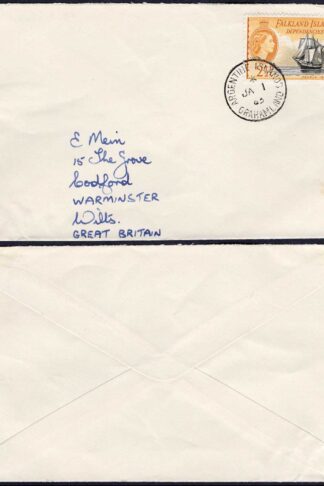 FALKLAND ISLAN
DEPENDENCIES
2½
ARGENTINE ISLANDS
JA 1
63
GRAHAM LAND
E Mein
15 The Grove
Codford
WARMINSTER
Wilts.
GREAT BRITAIN